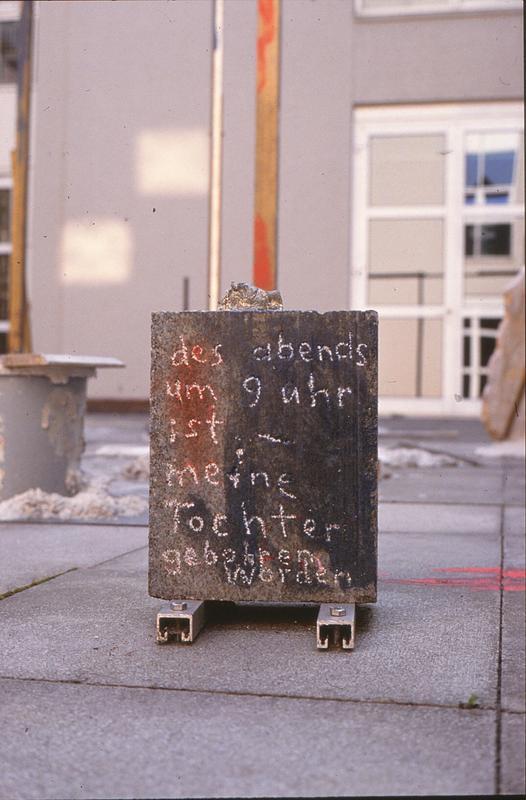 des abends
um 9 uhr
ist
meine
Tochter
gebohrem
worden